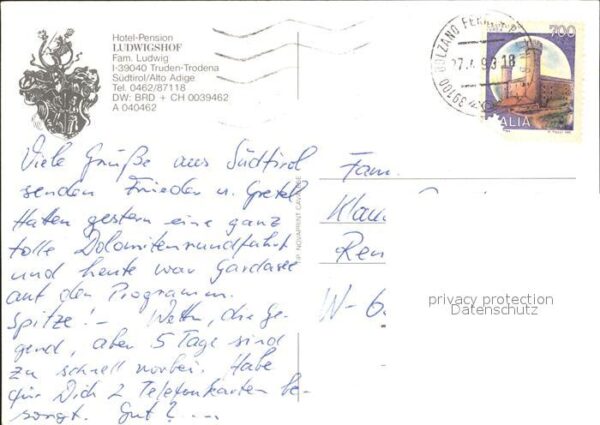 Hotel-Pension
LUDWIGSHOF
Fam. Ludwig
I-39040 Truden-Trodena
Südtirol/Alto Adige
Tel. 0462/87118
DW: BRD + CH 0039462
A 040462
700
ITALIA
39100 BOLZANO FERR
27.4.93 18
Viele Grüße aus Südtirol
senden Frieder u. Gretel
Hatten gestern eine ganz
tolle Dolomitenrundfahrt
und heute war Gardasee
auf dem Programm.
Spitze! – Wetter, die Ge-
gend, aber 5 Tage sind
zu schnell vorbei. Habe
für Dich 2 Telefonkarten be-
sorgt. Gut? ...
NOVAPRINT
Fam.
Klau
Ren
W-6
privacy protection
Datenschutz